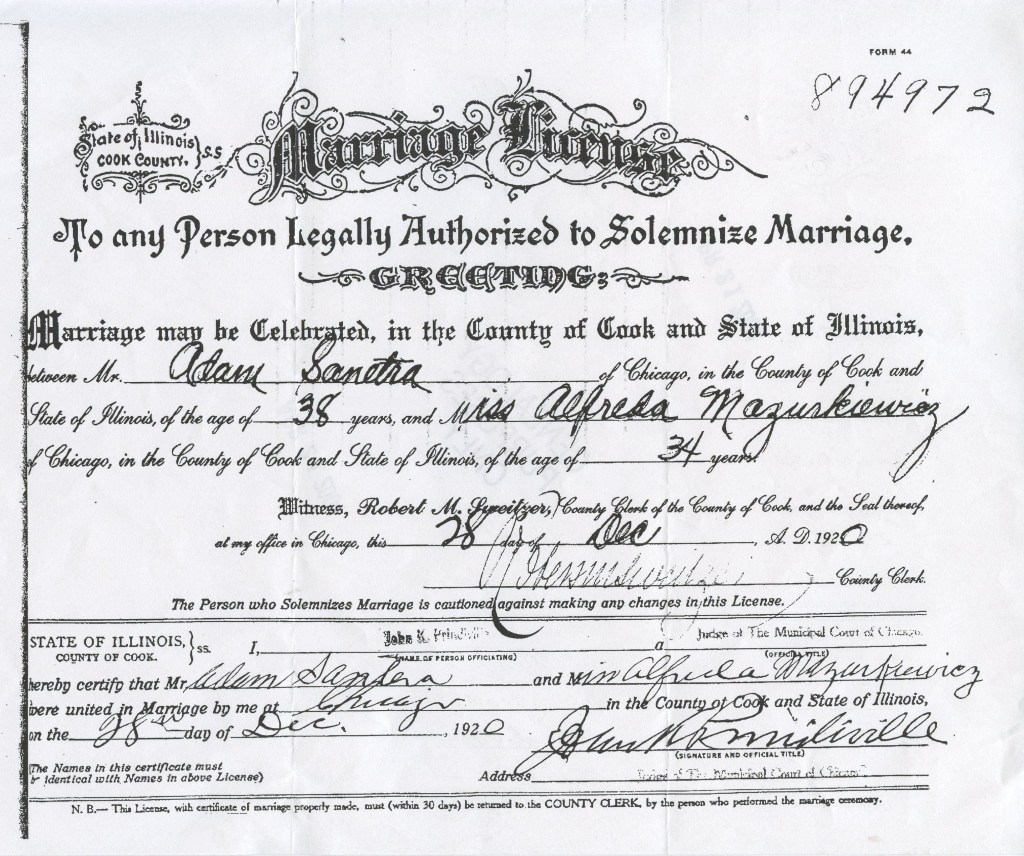 FORM 44
894972
State of Illinois
COOK COUNTY. } S.S
Marriage License
To any Person Legally Authorized to Solemnize Marriage.
GREETING:
Marriage may be Celebrated, in the County of Cook and State of Illinois,
between Mr. Adam Sanetra of Chicago, in the County of Cook and
State of Illinois, of the age of 38 years, and Miss Alfreda Mazurkiewicz
of Chicago, in the County of Cook and State of Illinois, of the age of 34 years.
Witness, Robert M. Sweitzer, County Clerk of the County of Cook, and the Seal thereof,
at my office in Chicago, this 28 day of Dec, A. D. 1920
County Clerk.
The Person who Solemnizes Marriage is cautioned against making any changes in this License.
STATE OF ILLINOIS,
COUNTY OF COOK. } ss. I, John K. Prindiville a Judge of The Municipal Court of Chicago
(NAME OF PERSON OFFICIATING) (OFFICIAL TITLE)
hereby certify that Mr. Adam Sanetra and Miss Alfreda Mazurkiewicz
were united in Marriage by me at Chicago in the County of Cook and State of Illinois,
on the 28th day of Dec., 1920
John K Prindiville
(SIGNATURE AND OFFICIAL TITLE)
(The Names in this certificate must
be identical with Names in above License)
Address Judge of The Municipal Court of Chicago
N. B.— This License, with certificate of marriage properly made, must (within 30 days) be returned to the COUNTY CLERK, by the person who performed the marriage ceremony.